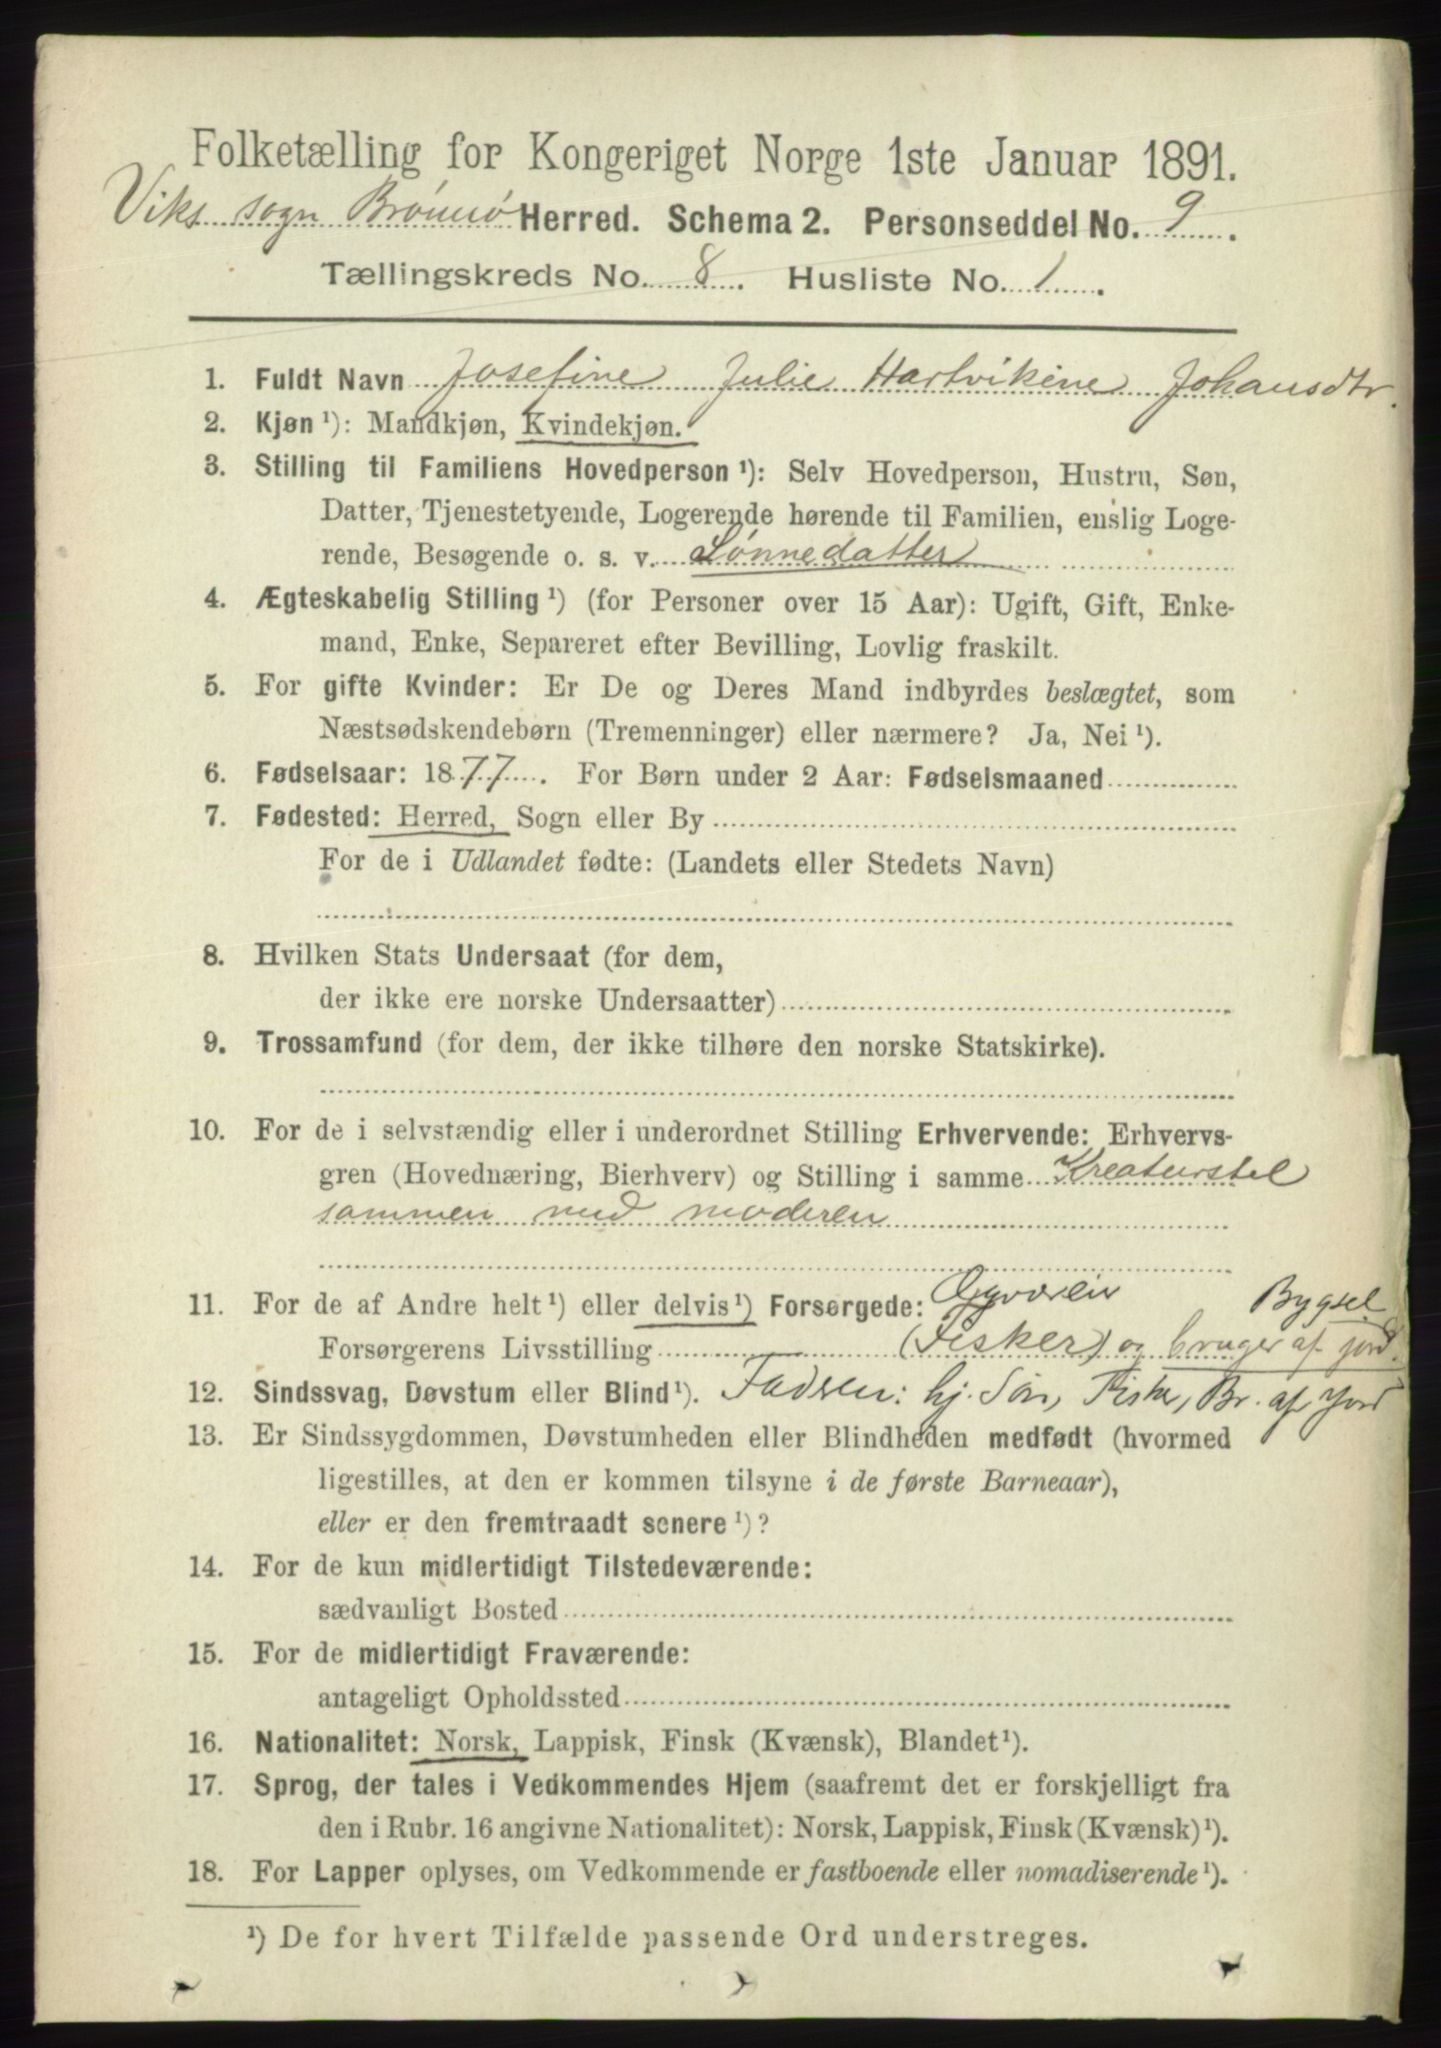 Folketælling for Kongeriget Norge 1ste Januar 1891.
Viks sogn Brønnø Herred. Schema 2. Personseddel No. 9.
Tællingskreds No. 8. Husliste No. 1.
1. Fuldt Navn Josefine Julie Hartvikine Johansdtr.
2. Kjøn ¹): Mandkjøn, Kvindekjøn.
3. Stilling til Familiens Hovedperson ¹): Selv Hovedperson, Hustru, Søn,
Datter, Tjenestetyende, Logerende hørende til Familien, enslig Loge-
rende, Besøgende o. s. v. Sønnedatter
4. Ægteskabelig Stilling ¹) (for Personer over 15 Aar): Ugift, Gift, Enke-
mand, Enke, Separeret efter Bevilling, Lovlig fraskilt.
5. For gifte Kvinder: Er De og Deres Mand indbyrdes beslægtet, som
Næstsødskendebørn (Tremenninger) eller nærmere? Ja, Nei ¹).
6. Fødselsaar: 1877. For Børn under 2 Aar: Fødselsmaaned
7. Fødested: Herred, Sogn eller By
For de i Udlandet fødte: (Landets eller Stedets Navn)
8. Hvilken Stats Undersaat (for dem,
der ikke ere norske Undersaatter)
9. Trossamfund (for dem, der ikke tilhøre den norske Statskirke).
10. For de i selvstændig eller i underordnet Stilling Erhvervende: Erhvervs-
gren (Hovednæring, Bierhverv) og Stilling i samme Kreaturstel
sammen med moderen
11. For de af Andre helt ¹) eller delvis ¹) Forsørgede: Bygsel
Forsørgerens Livsstilling (Fisker) og bruger af jord.
12. Sindssvag, Døvstum eller Blind ¹). Fadren: hj. Søn, Fisker, Br. af Jord
13. Er Sindssygdommen, Døvstumheden eller Blindheden medfødt (hvormed
ligestilles, at den er kommen tilsyne i de første Barneaar),
eller er den fremtraadt senere ¹)?
14. For de kun midlertidigt Tilstedeværende:
sædvanligt Bosted
15. For de midlertidigt Fraværende:
antageligt Opholdssted
16. Nationalitet: Norsk, Lappisk, Finsk (Kvænsk), Blandet ¹).
17. Sprog, der tales i Vedkommendes Hjem (saafremt det er forskjelligt fra
den i Rubr. 16 angivne Nationalitet): Norsk, Lappisk, Finsk (Kvænsk) ¹).
18. For Lapper oplyses, om Vedkommende er fastboende eller nomadiserende ¹).
¹) De for hvert Tilfælde passende Ord understreges.